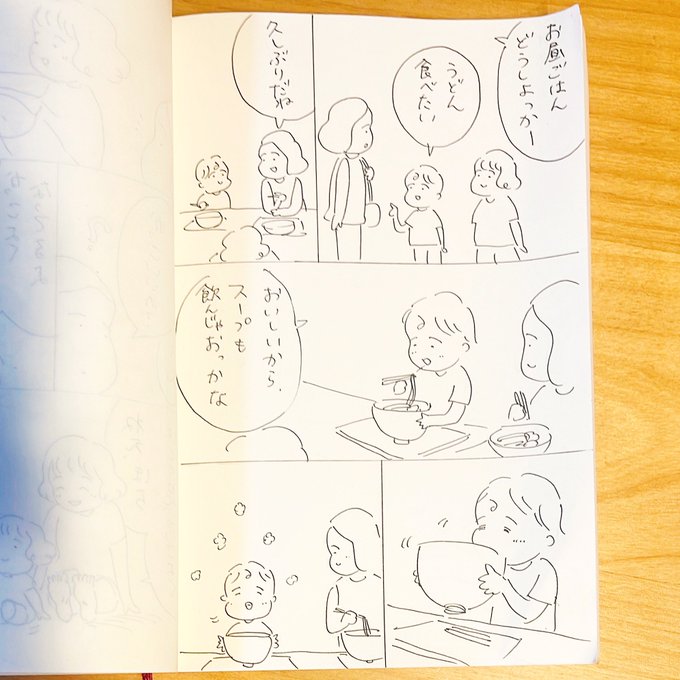 お昼ごはん
どうしよっかー
うどん
食べたい
久しぶりだね
おいしいから、
スープも
飲んじゃおっかな